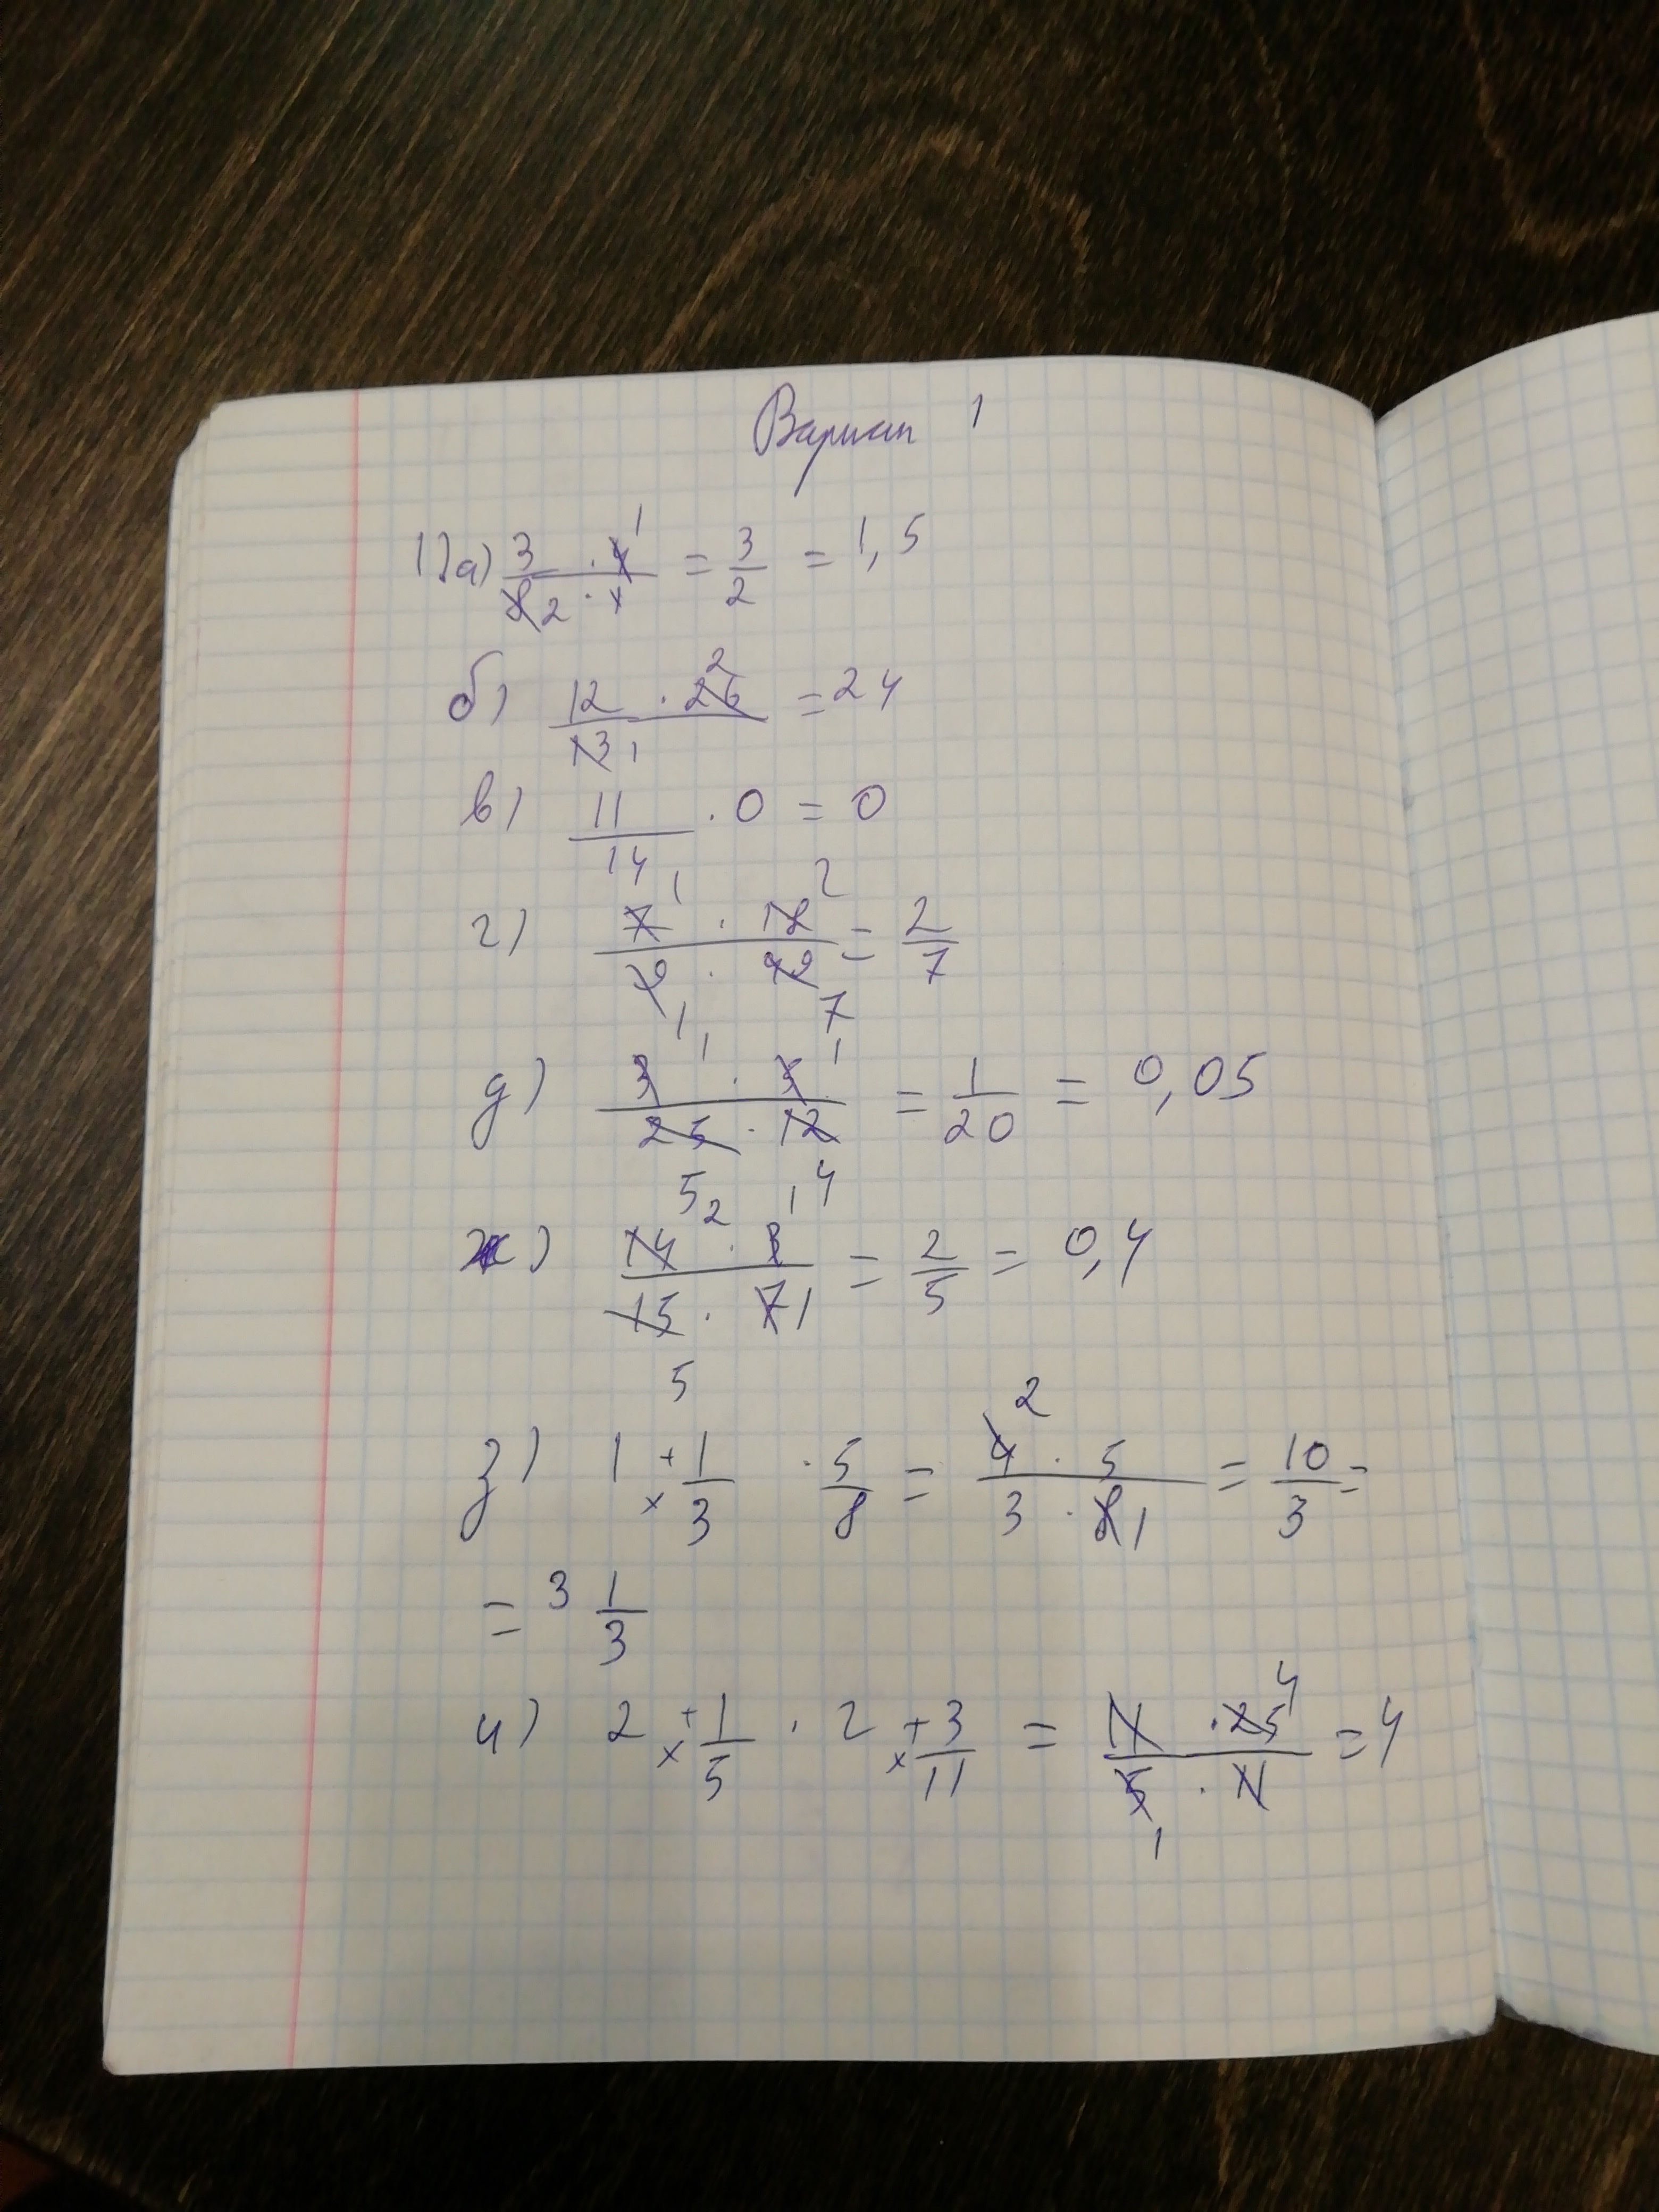 Вариант 1
1) а) 3 · 4 1 / 8 2 · 1 = 3/2 = 1,5
б) 12 · 26 2 / 13 1 = 24
в) 11/14 · 0 = 0
г) 7 1 · 12 2 / 9 1 · 42 7 = 2/7
д) 3 1 · 5 1 / 25 5 · 12 4 = 1/20 = 0,05
ж) 14 2 · 3 1 / 15 5 · 7 1 = 2/5 = 0,4
з) 1 + × 1/3 · 5/8 = 4 2 · 5 / 3 · 8 1 = 10/3 =
= 3 1/3
и) 2 + × 1/5 · 2 + × 3/11 = 11 · 25 4 / 5 1 · 11 = 4